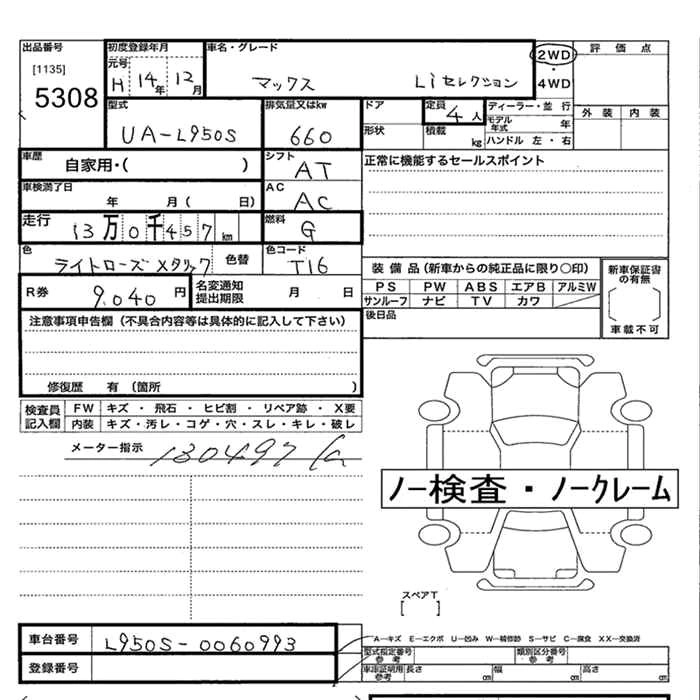 出品番号 初度登録年月 車名・グレード 2WD 評価点
[1135] 元号 H 14年 12月 マックス Liセレクション ・
5308 4WD
型式 排気量又はkw ドア 定員 4人 ディーラー・並行 外装 内装
UA-L950S 660 形状 積載 kg モデル年式 年
ハンドル 左・右
車歴 自家用・( ) シフト AT 正常に機能するセールスポイント
車検満了日 年 月( 日) AC AC
走行 13万0千457km 燃料 G
色 ライトローズメタリック 色替 色コード T16
装備品(新車からの純正品に限り○印) 新車保証書の有無
R券 9,040円 名変通知提出期限 月 日 PS PW ABS エアB アルミW
サンルーフ ナビ TV カワ [ ]
注意事項申告欄(不具合内容等は具体的に記入して下さい) 後日品 車載不可
修復歴 有(箇所 )
検査員記入欄 FW キズ・飛石・ヒビ割・リペア跡・X要
内装 キズ・汚レ・コゲ・穴・スレ・キレ・破レ
メーター指示 130497
ノー検査・ノークレーム
スペアT
[ ]
車台番号 L950S-0060993 A-キズ E-エクボ U-凹み W-補修跡 S-サビ C-腐食 XX-交換済
型式指定番号参考 類別区分番号参考
登録番号 車庫証明用参考 長さ cm 幅 cm 高さ cm